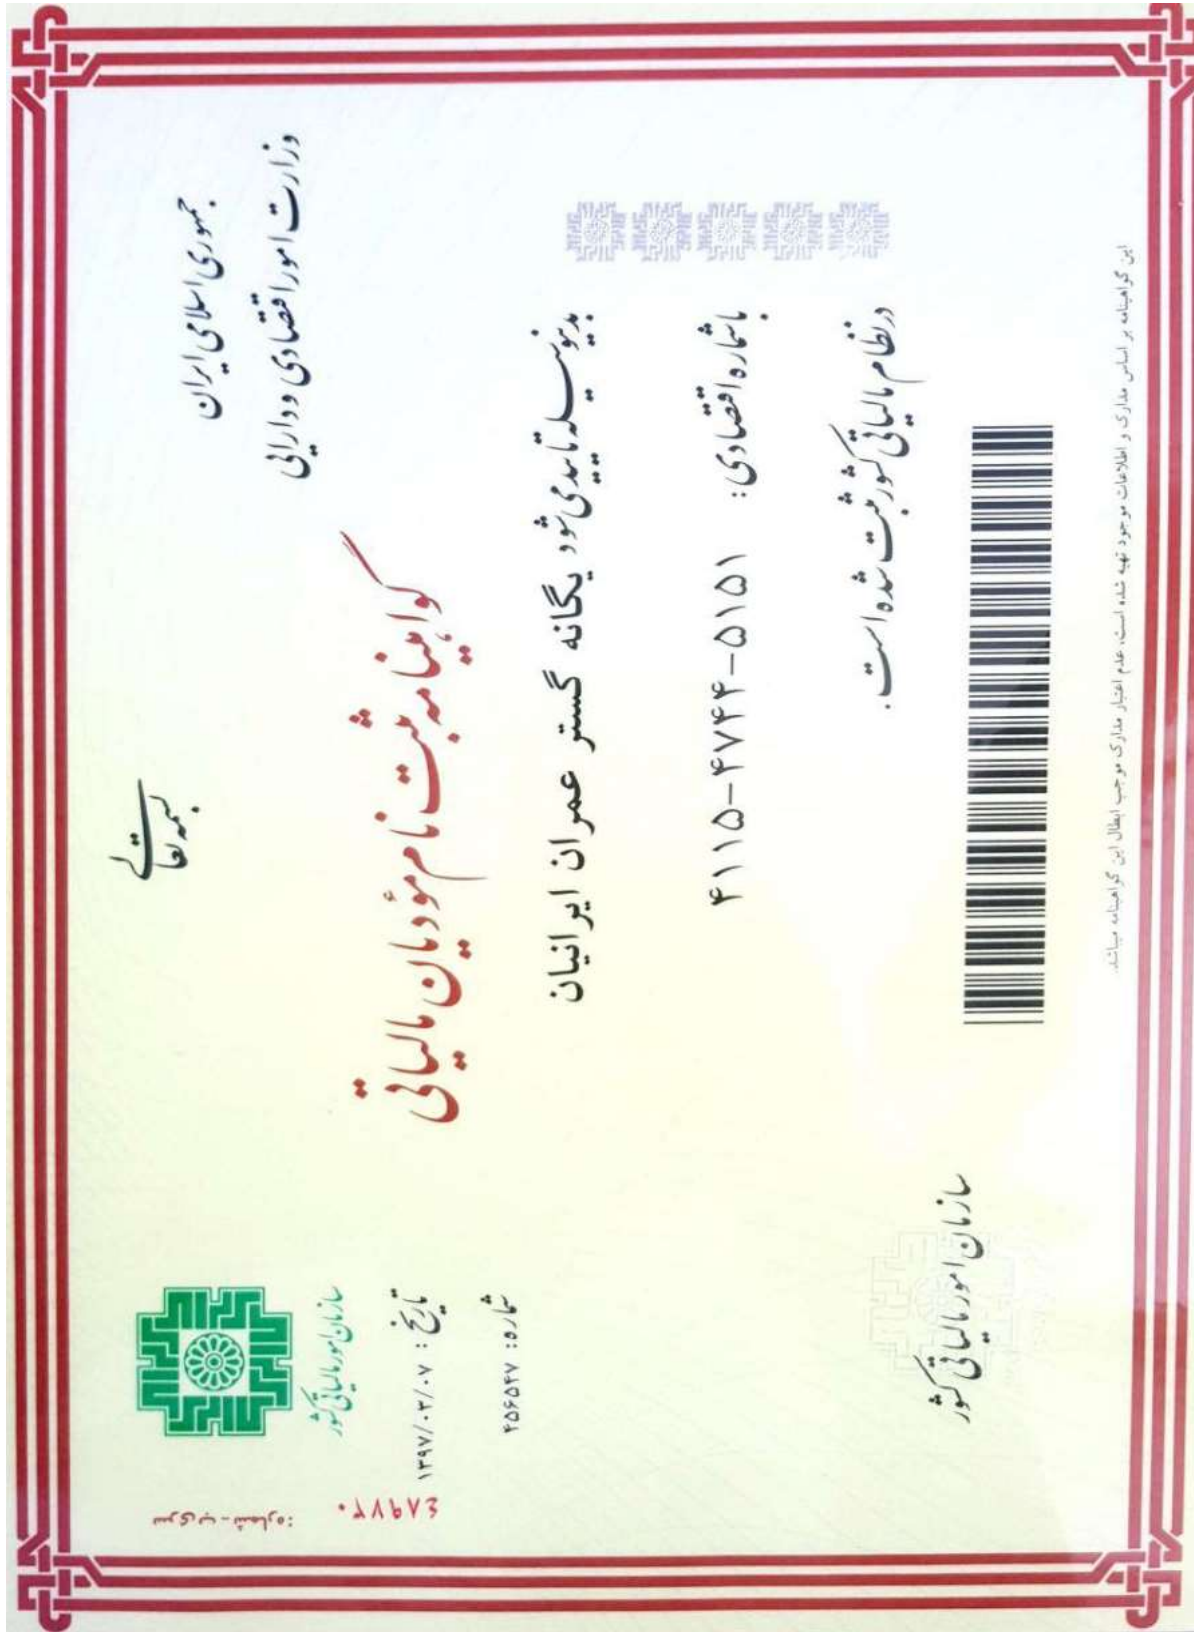 بسمه تعالی
جمهوری اسلامی ایران
وزارت امور اقتصادی و دارایی
سازمان امور مالیاتی کشور
سری ب - شماره:
تاریخ: ۱۳۹۷/۰۳/۰۷
شماره: ۴۵۶۵۴۷
گواهینامه ثبت نام مؤدیان مالیاتی
بدینوسیله تایید می شود یگانه گستر عمران ایرانیان
با شماره اقتصادی: ۴۱۱۵-۴۷۴۴-۵۱۵۱
در نظام مالیاتی کشور ثبت شده است.
سازمان امور مالیاتی کشور
این گواهینامه بر اساس مدارک و اطلاعات موجود تهیه شده است، عدم اعتبار مدارک موجب ابطال این گواهینامه میباشد.